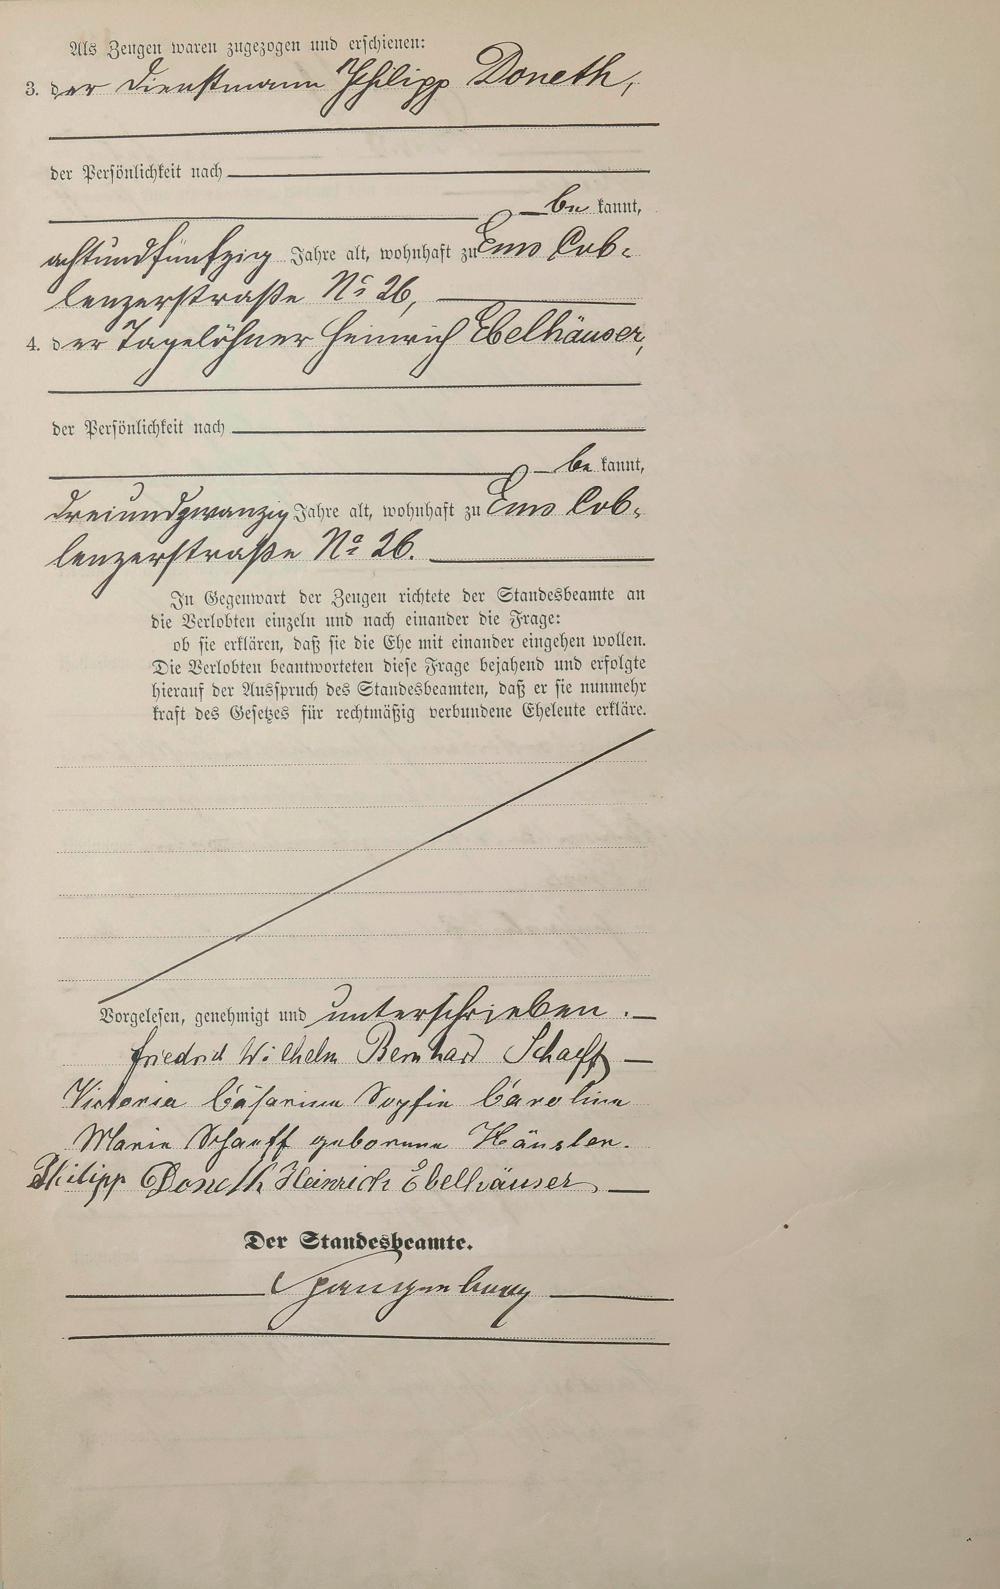 Als Zeugen waren zugezogen und erschienen:
3. der Dienstmann Philipp Doneth,
der Persönlichkeit nach
be kannt,
achtundfünfzig Jahre alt, wohnhaft zu Ems Cob-
lenzerstraße No 26,
4. der Tagelöhner Heinrich Ebelhäuser,
der Persönlichkeit nach
be kannt,
dreiundzwanzig Jahre alt, wohnhaft zu Ems Cob-
lenzerstraße No 26.
In Gegenwart der Zeugen richtete der Standesbeamte an
die Verlobten einzeln und nach einander die Frage:
ob sie erklären, daß sie die Ehe mit einander eingehen wollen.
Die Verlobten beantworteten diese Frage bejahend und erfolgte
hierauf der Ausspruch des Standesbeamten, daß er sie nunmehr
kraft des Gesetzes für rechtmäßig verbundene Eheleute erkläre.
Vorgelesen, genehmigt und unterschrieben.
Friedrich Wilhelm Bernhard Schaeff
Victoria Cäsarina Sophie Caroline
Marie Schaeff geborene Hänsler.
Philipp Doneth Heinrich Ebelhäuser
Der Standesbeamte.
Spangenberg